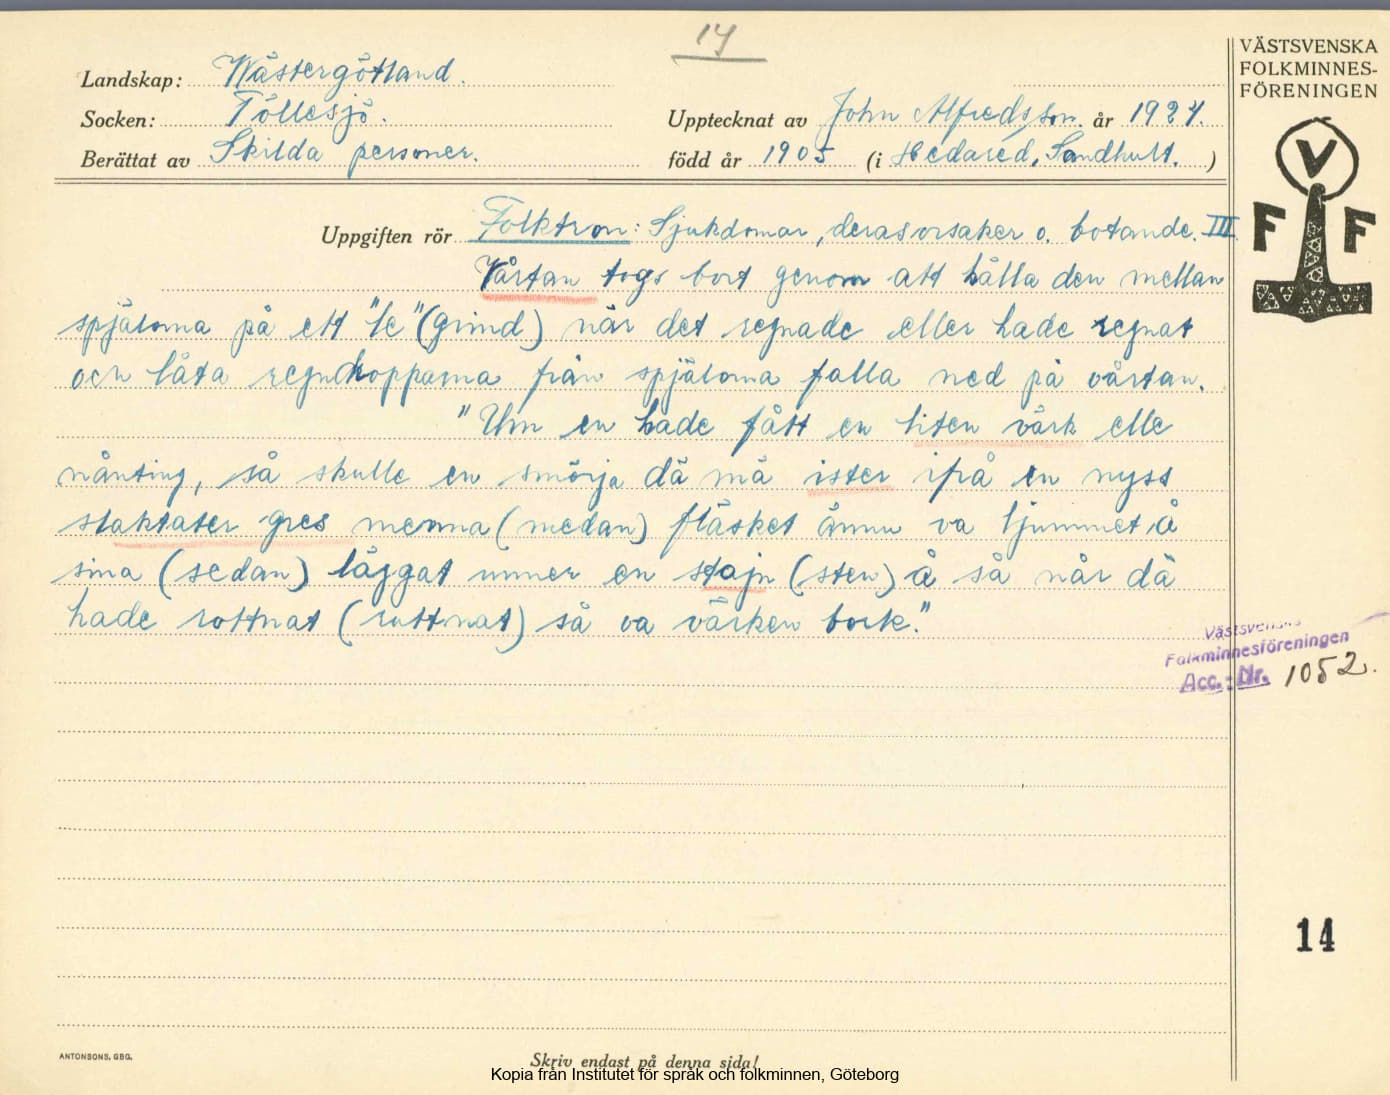 14
VÄSTSVENSKA
FOLKMINNES-
FÖRENINGEN
Landskap: Wästergötland.
Socken: Töllesjö.
Upptecknat av John Alfredsson. år 1927.
Berättat av Skilda personer.
född år 1905 (i Hedared, Sandhult. )
V
F F
Uppgiften rör Folktron: Sjukdomar, deras orsaker o. botande. III.
Vårtan togs bort genom att hålla den mellan
spjälorna på ett "le" (grind) när det regnade eller hade regnat
och låta regndropparna från spjälorna falla ned på vårtan.
"Um en hade fått en liten värk elle
nånting, så skulle en smörja dä mä ister ifrå en nyss
slaktater gres menna (medan) fläsket ännu va ljummet å
sina (sedan) läggat unner en stajn (sten) å så når dä
hade rottnat (ruttnat) så va värken bortt."
Västsvenska
Folkminnesföreningen
Acc.-Nr. 1052.
14
ANTONSONS. GBG.
Skriv endast på denna sida!
Kopia från Institutet för språk och folkminnen, Göteborg